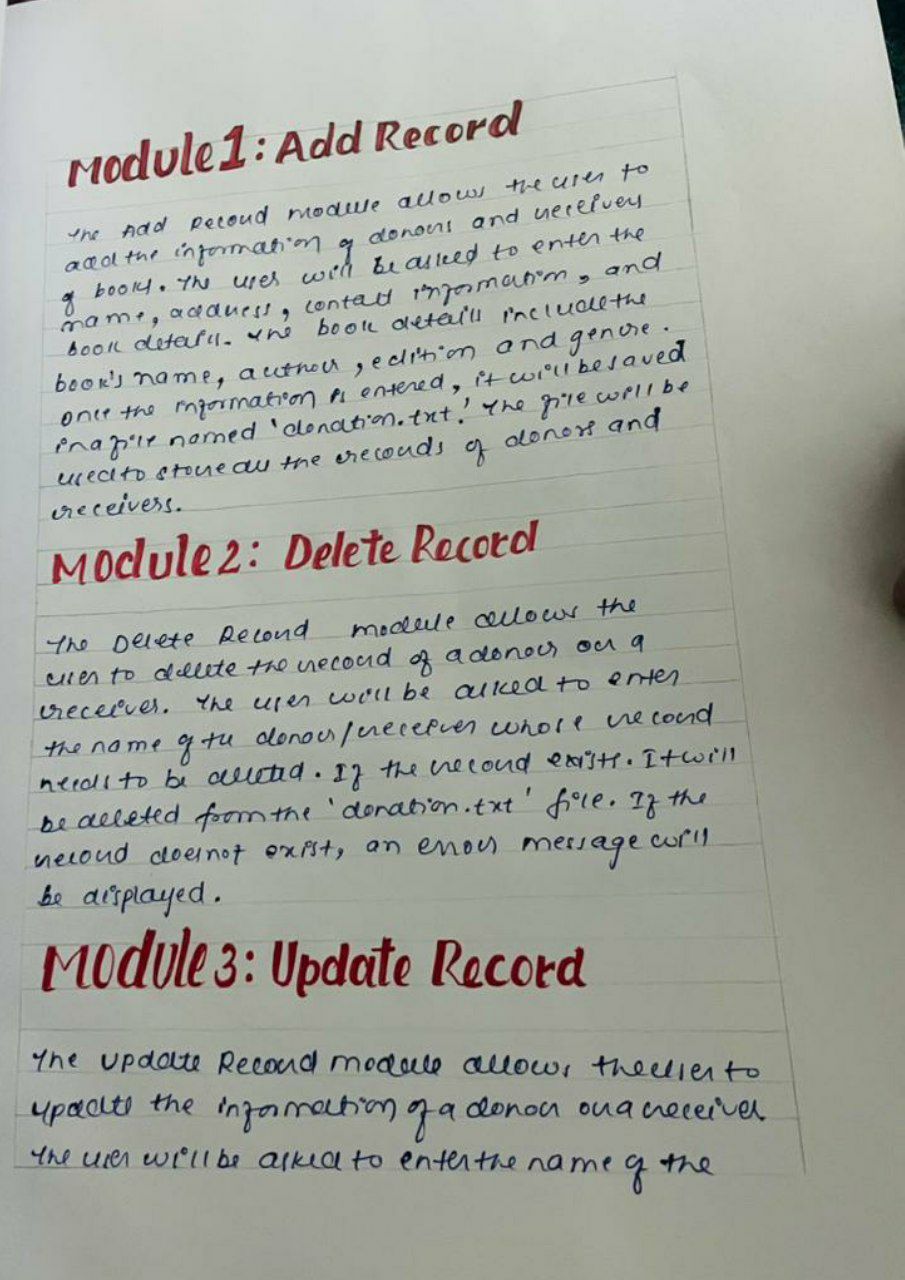 Module 1: Add Record
The Add Record module allows the user to
add the information of donors and receivers
of books. The user will be asked to enter the
name, address, contact information, and
book details. The book details include the
book's name, author, edition and genre.
once the information is entered, it will be saved
in a file named 'donation.txt.' The file will be
used to store all the records of donors and
receivers.
Module 2: Delete Record
The Delete Record module allows the
user to delete the record of a donor or a
receiver. The user will be asked to enter
the name of the donor/receiver whose record
needs to be deleted. If the record exists. It will
be deleted from the 'donation.txt' file. If the
record doesnot exist, an error message will
be displayed.
Module 3: Update Record
The Update Record module allows the user to
update the information of a donor or a receiver
The user will be asked to enter the name of the